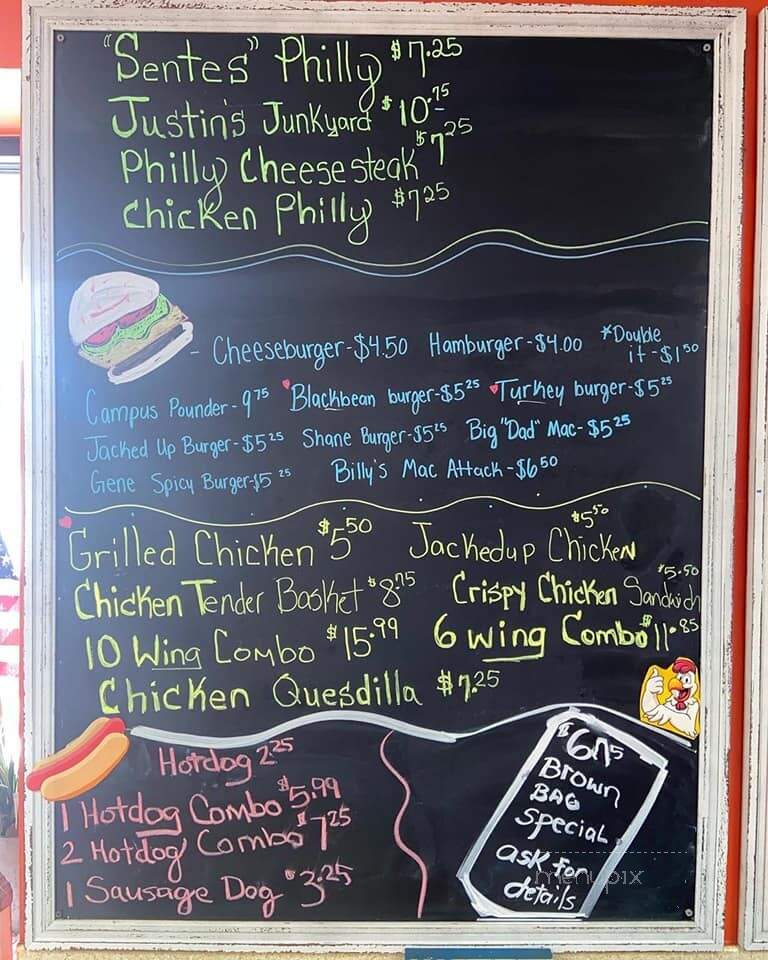 "Sentes" Philly $7.25
Justin's Junkyard $10.75
Philly Cheesesteak $7.25
Chicken Philly $7.25
- Cheeseburger-$4.50 Hamburger-$4.00 *Double
it-$1.50
Campus Pounder-9.75 Blackbean burger-$5.25 Turkey burger-$5.25
Jacked Up Burger-$5.25 Shane Burger-$5.25 Big "Dad" Mac-$5.25
Gene Spicy Burger-$5.25 Billy's Mac Attack-$6.50
Grilled Chicken $5.50 Jackedup Chicken $5.50
Chicken Tender Basket $8.75 Crispy Chicken Sandwich $5.50
10 Wing Combo $15.99 6 wing Combo $11.85
Chicken Quesdilla $7.25
Hotdog 2.25
1 Hotdog Combo $5.99
2 Hotdog Combo $7.25
1 Sausage Dog $3.25
Brown
BAG
Special
ask for
details
menupix